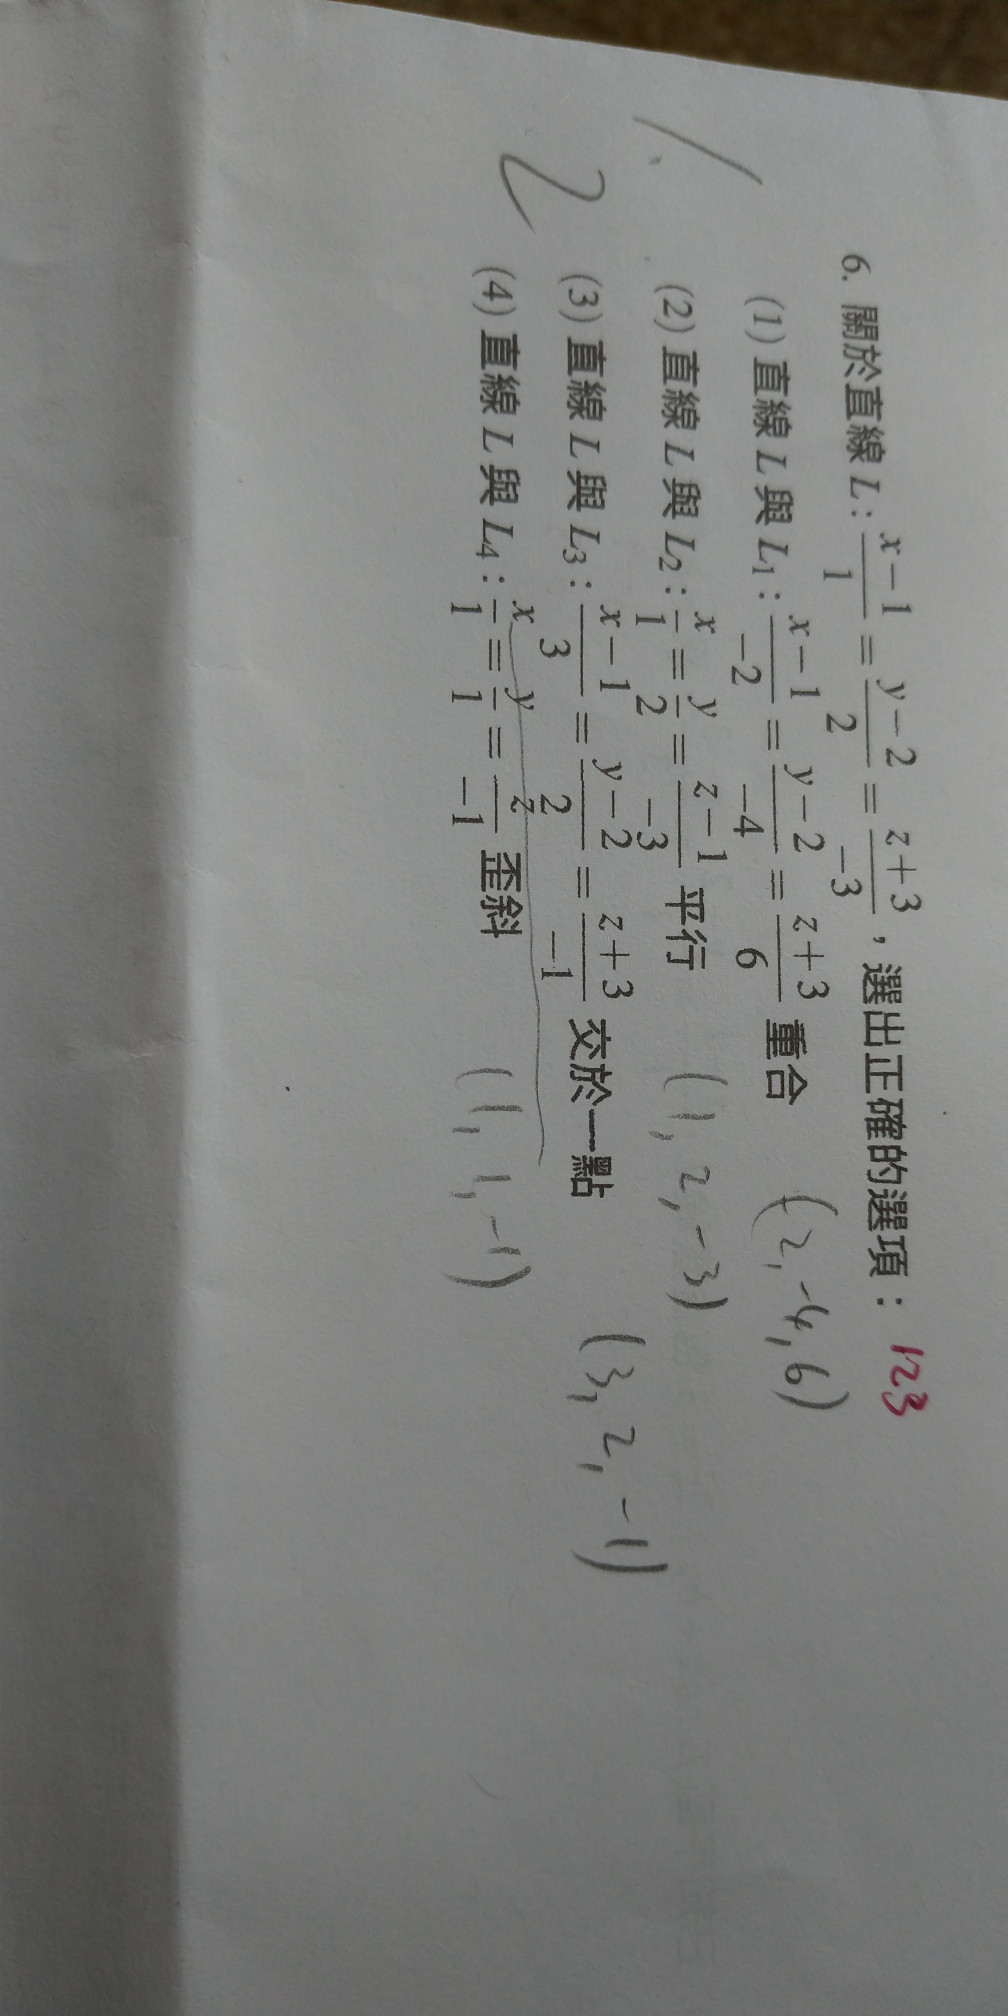 6. 關於直線 L : \frac{x-1}{1} = \frac{y-2}{2} = \frac{z+3}{-3} , 選出正確的選項 : 123
(1) 直線 L 與 L₁ : \frac{x-1}{-2} = \frac{y-2}{-4} = \frac{z+3}{6} 重合 (2, -4, 6)
(2) 直線 L 與 L₂ : \frac{x}{1} = \frac{y}{2} = \frac{z-1}{-3} 平行 (1, 2, -3)
(3) 直線 L 與 L₃ : \frac{x-1}{3} = \frac{y-2}{2} = \frac{z+3}{-1} 交於一點 (3, 2, -1)
(4) 直線 L 與 L₄ : \frac{x}{1} = \frac{y}{1} = \frac{z}{-1} 歪斜 (1, 1, -1)